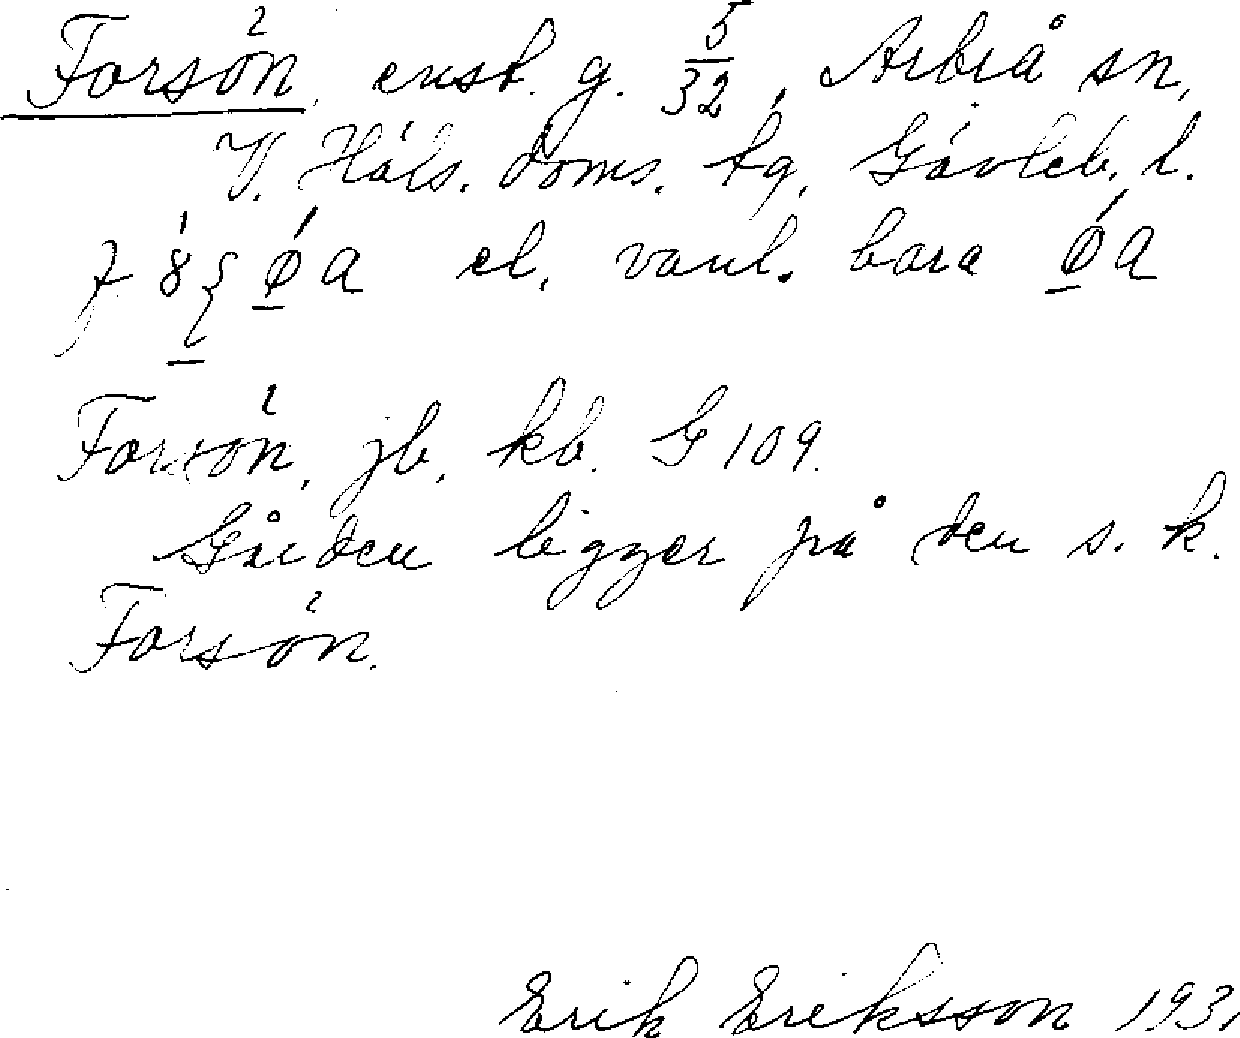 Forsön, enst. g. 5/32, Arbrå sn,
V. Häls. doms. tg, Gävleb. l.
el. vanl. bara
Forsön, jb, kb. G 109.
Gården ligger på den s. k.
Forsön.
Erik Eriksson 1931